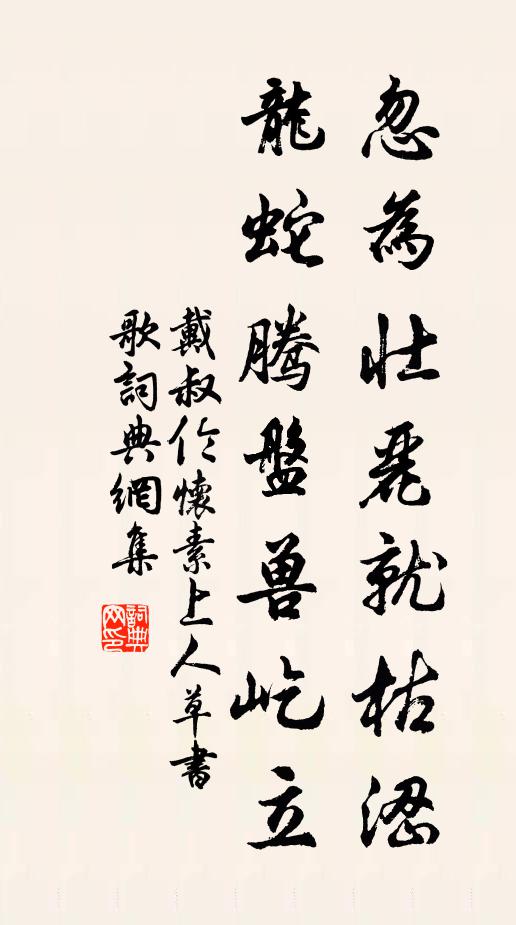 忽為壯麗就枯澀
龍蛇騰盤兽屹立
戴叔伦懷素上人草書
歌詞典網集
詞典网印